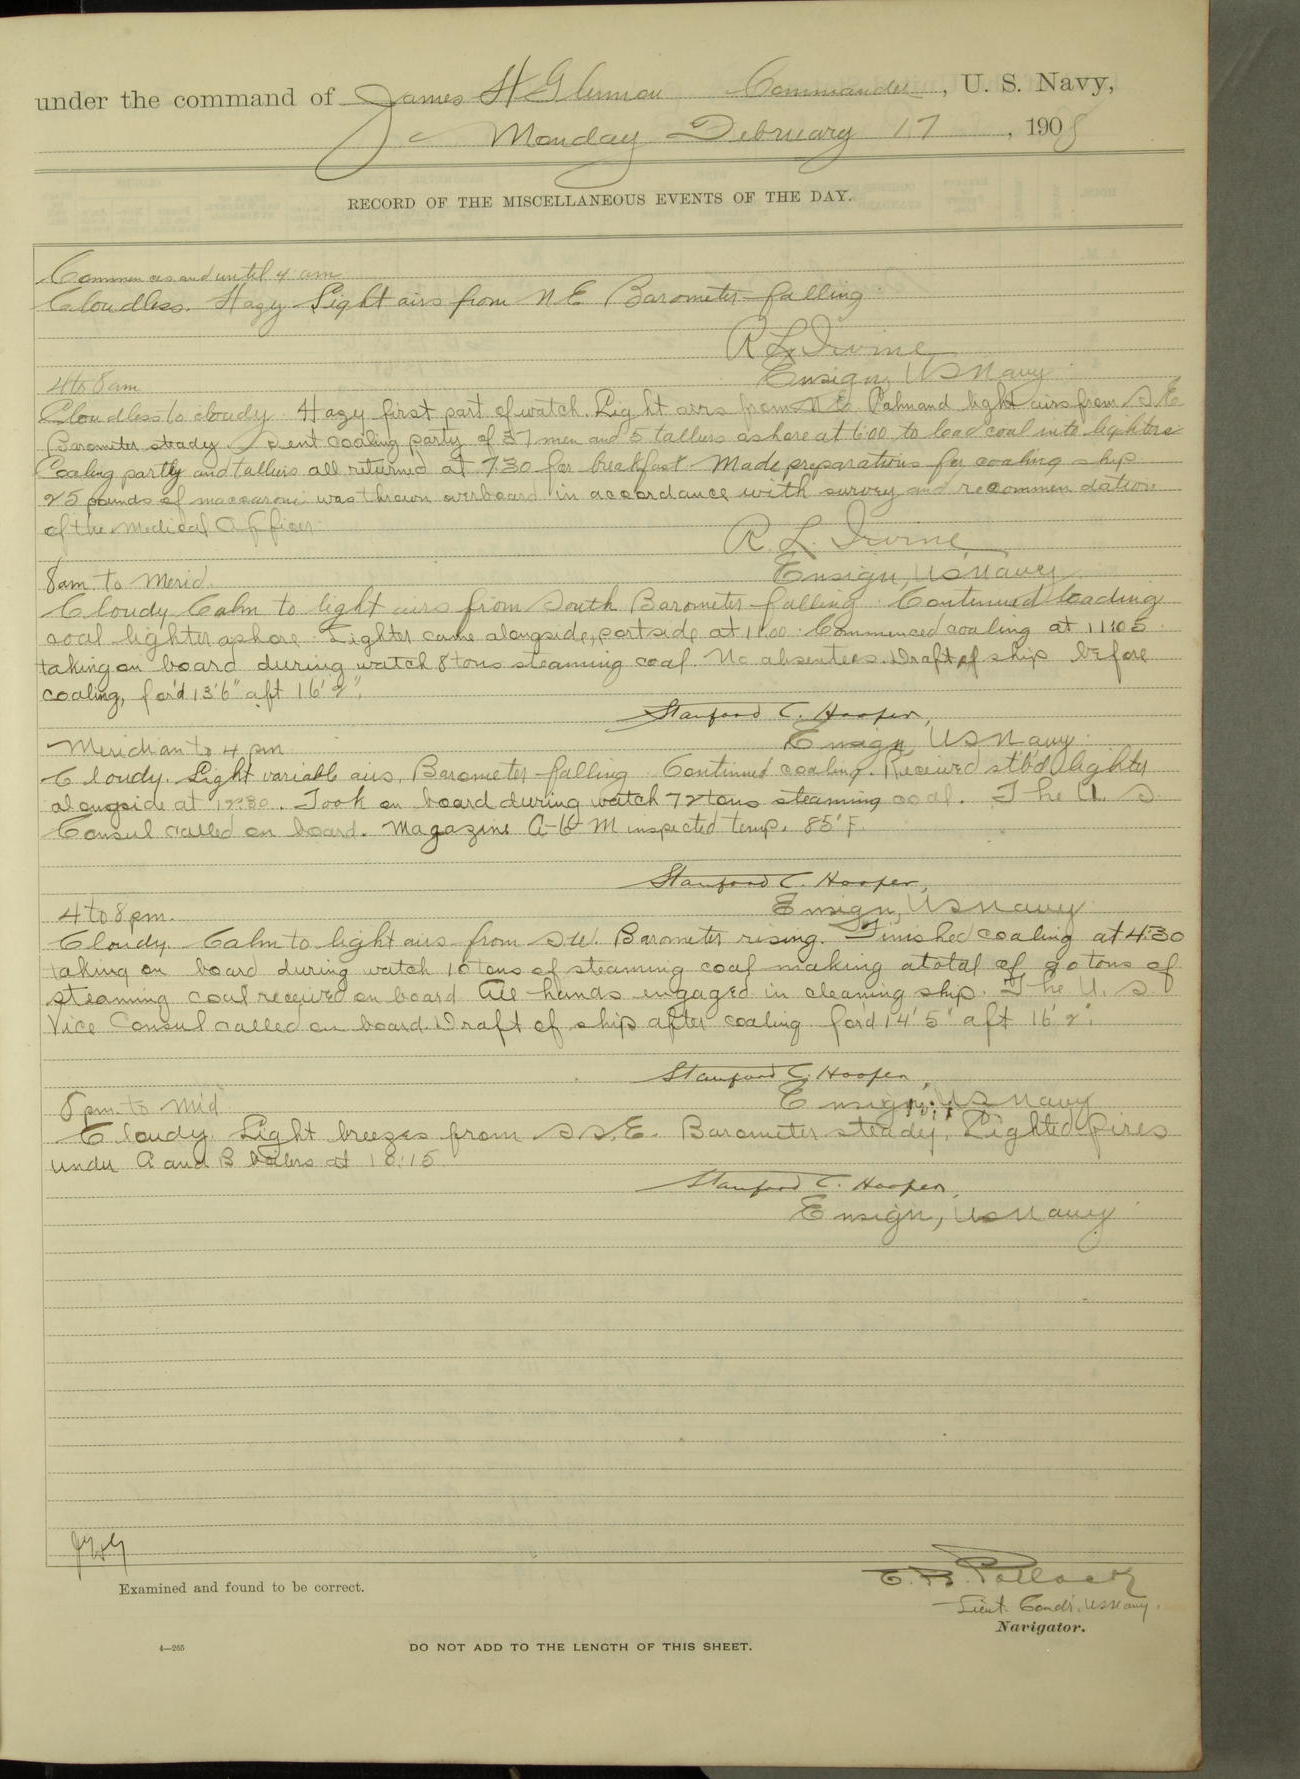 under the command of James H Glennon Commander, U. S. Navy,
Monday February 17, 1908
RECORD OF THE MISCELLANEOUS EVENTS OF THE DAY.
Commences and until 4 am
Cloudless. Hazy Light airs from N E Barometer falling.
R L Irvine
Ensign, U S Navy
4 to 8 am
Cloudless to cloudy. Hazy first part of watch. Light airs from N E. Calm and light airs from S E
Barometer steady. Sent coaling party of 37 men and 5 talliers ashore at 6:00 to load coal into lighters
Coaling party and talliers all returned at 7:30 for breakfast. Made preparations for coaling ship
25 pounds of maccaroni was thrown overboard in accordance with survey and recommendation
of the Medical Officer.
R. L. Irvine
Ensign, U S Navy
8 am to Merid.
Cloudy Calm to light airs from South Barometer falling. Continued loading
coal lighter ashore. Lighter came alongside, port side at 11:00. Commenced coaling at 11:05
taking on board during watch 8 tons steaming coal. No absentees. Draft of ship before
coaling, for'd 13'6" aft 16'2".
Stanford C. Hooper,
Ensign, U S Navy
Meridian to 4 pm
Cloudy. Light variable airs. Barometer falling. Continued coaling. Received stbd lighter
alongside at 12:30. Took on board during watch 72 tons steaming coal. The U. S.
Consul called on board. Magazine A-16-M inspected temp. 85° F.
Stanford C. Hooper,
Ensign, U S Navy
4 to 8 pm.
Cloudy. Calm to light airs from S.W. Barometer rising. Finished coaling at 4:30
taking on board during watch 10 tons of steaming coal making a total of 90 tons of
steaming coal received on board All hands engaged in cleaning ship. The U. S.
Vice Consul called on board. Draft of ship after coaling for'd 14' 5" aft 16' 2".
Stanford C. Hooper,
Ensign, U S Navy
8 pm to Mid
Cloudy. Light breezes from S.S.E. Barometer steady. Lighted fires
under A and B boilers at 10:15
Stanford C. Hooper,
Ensign, U S Navy
JHG
Examined and found to be correct.
C. B. Pollock
Lieut. Comdr. U S Navy.
Navigator.
4—265
DO NOT ADD TO THE LENGTH OF THIS SHEET.